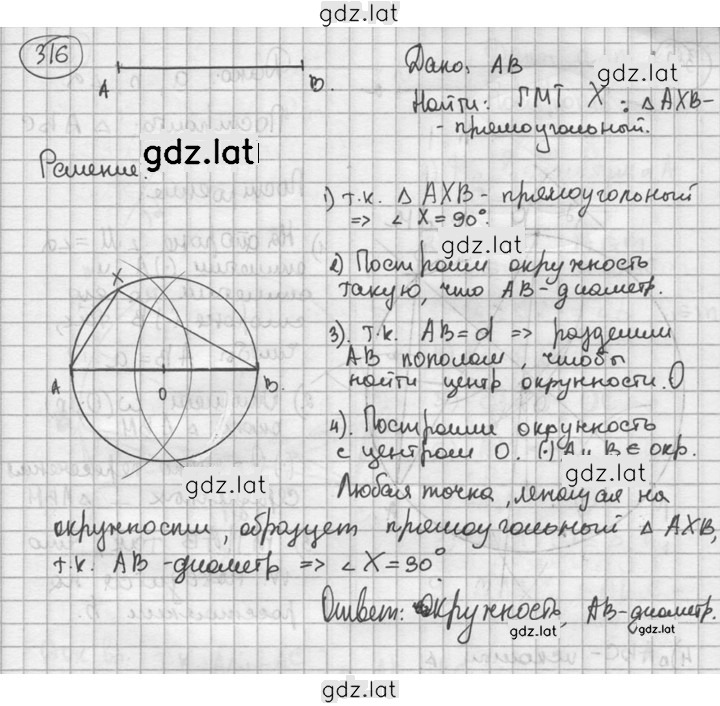 gdz.lat
316
A
B.
Дано: AB
gdz.lat
Найти: ГМТ X : △ AXB-
- прямоугольный.
Решение.
gdz.lat
1) т.к. △ AXB - прямоугольный
=> ∠ X = 90°.
gdz.lat
2) Построим окружность
такую, что AB - диаметр.
X
A
B.
O
3). т.к. AB = d => разделим
AB пополам, чтобы
найти центр окружности. O
gdz.lat
4). Построим окружность
с центром O. (·) A и B ∈ окр.
gdz.lat
gdz.lat
Любая точка, лежащая на
окружности, образует прямоугольный △ AXB,
т.к. AB - диаметр => ∠ X = 90°.
gdz.lat
Ответ: окружность, AB - диаметр.
gdz.lat
gdz.lat
gdz.lat